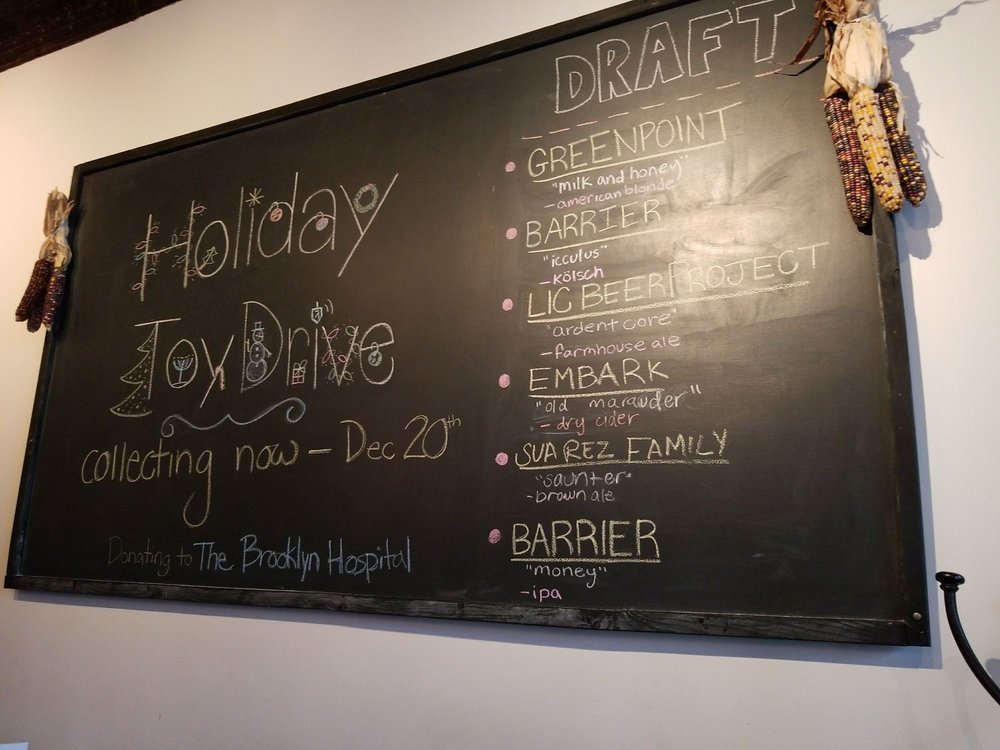 Holiday
Toy Drive
collecting now – Dec 20th
Donating to The Brooklyn Hospital
DRAFT
GREENPOINT
"milk and honey"
- american blonde
BARRIER
"icculus"
- kölsch
LIC BEER PROJECT
"ardent core"
- farmhouse ale
EMBARK
"old marauder"
- dry cider
SUAREZ FAMILY
"saunter"
- brown ale
BARRIER
"money"
- ipa